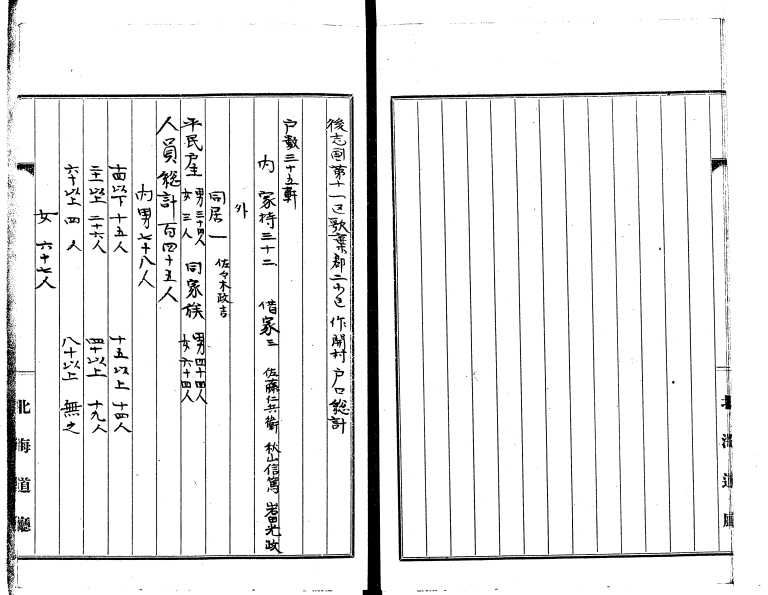 後志國第十一区歌棄郡二小区作開村戸口総計
戸数三十五軒
内 家持三十二 借家三 佐藤仁兵衛 秋山信篤 岩田光政
外
同居一 佐々木政吉
平民戸主 男三十四人 女三人 同家族 男四十四人 女六十四人
人員総計百四十五人
内男七十八人
十四以下十五人 十五以上十四人
二十以上二十六人 四十以上十九人
六十以上四人 八十以上無之
女六十七人
北海道廳
北海道廳